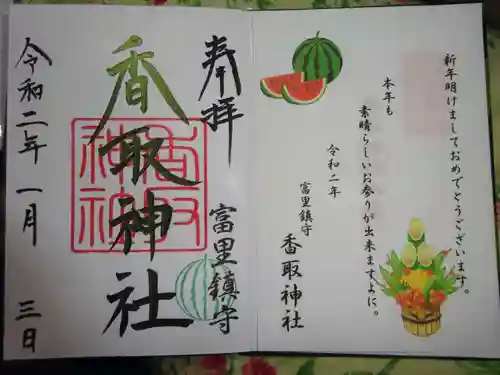 新年明けましておめでとうございます。
本年も
素晴らしいお参りが出来ますよに。
令和二年
富里鎮守
香取神社
奉拝
富里鎮守
香取神社
香取神社
令和二年 一月 三日